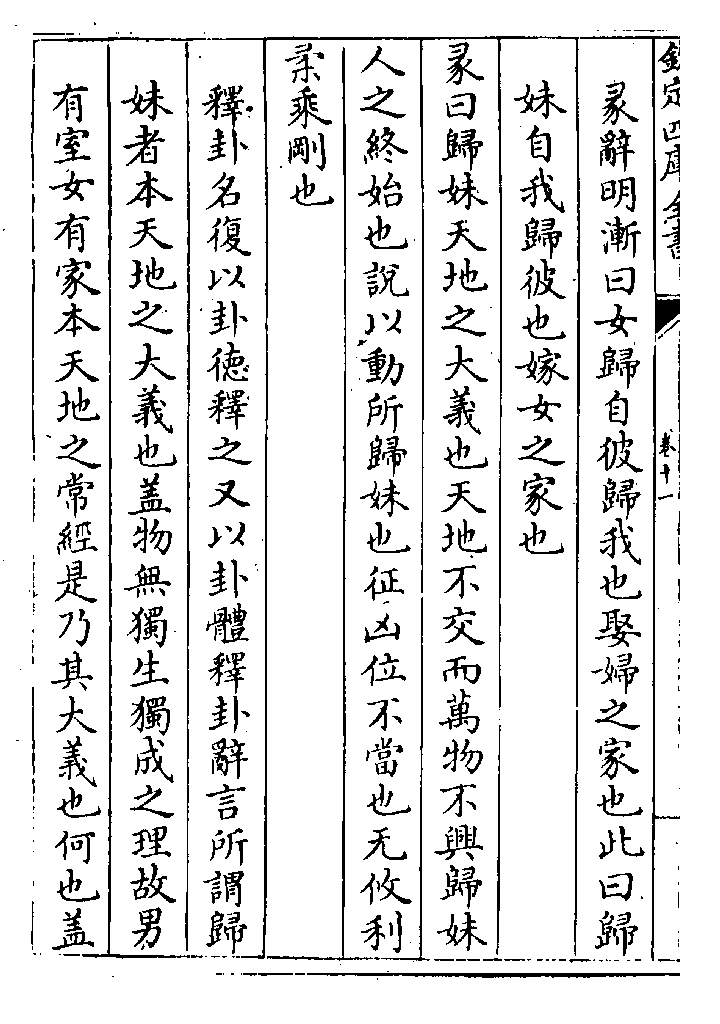 欽定四庫全書
卷十一
彖辭明漸曰女歸自彼歸我也娶婦之家也此曰歸
妹自我歸彼也嫁女之家也
彖曰歸妹天地之大義也天地不交而萬物不興歸妹
人之終始也說以動所歸妹也征凶位不當也无攸利
柔乘剛也
釋卦名復以卦德釋之又以卦體釋卦辭言所謂歸
妹者本天地之大義也盖物無獨生獨成之理故男
有室女有家本天地之常經是乃其大義也何也盖